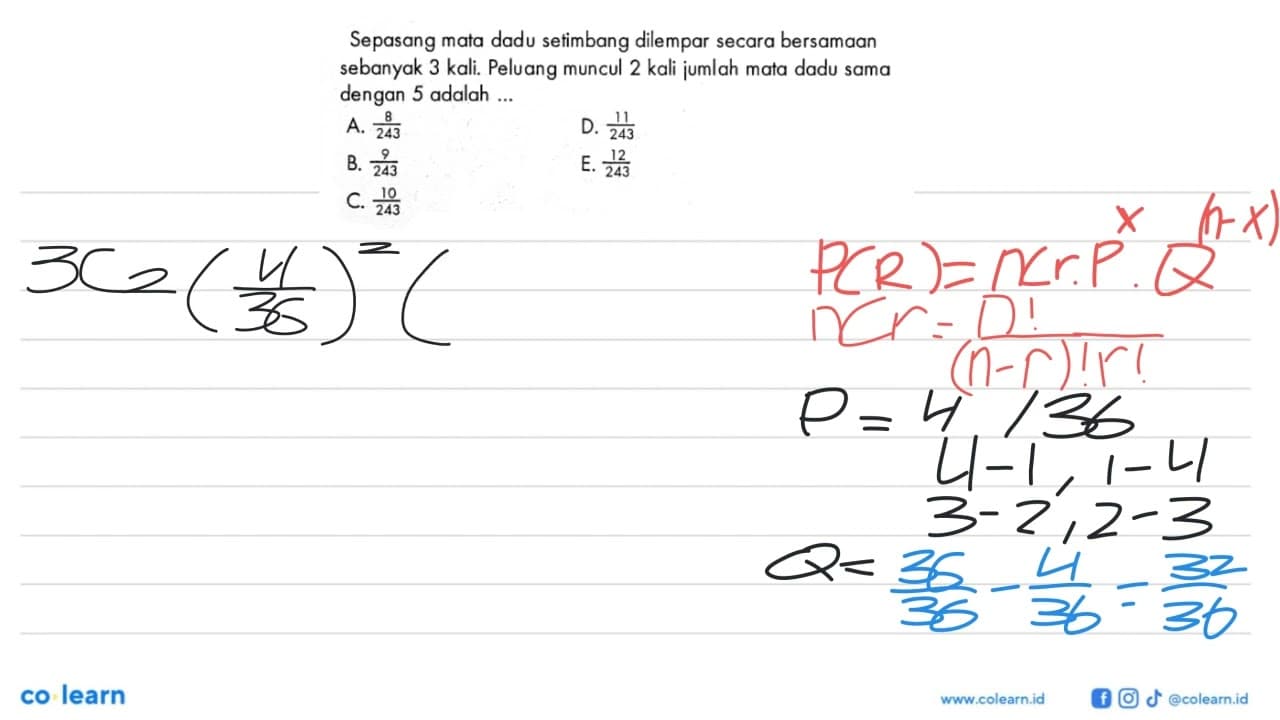 Sepasang mata dadu setimbang dilempar secara bersamaan
sebanyak 3 kali. Peluang muncul 2 kali jumlah mata dadu sama
dengan 5 adalah ...
A. 8/243
D. 11/243
B. 9/243
E. 12/243
C. 10/243
3C2 (4/36)^2 (
P(R) = nCr.P^x . Q^(n-x)
nCr = n!/(n-r)!r!
P = 4/36
4-1, 1-4
3-2, 2-3
Q = 36/36 - 4/36 = 32/36
co learn
www.colearn.id
@colearn.id